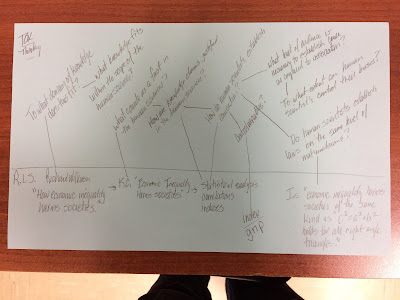 TOK
Thursday
To what domain of knowledge
does this fit?
what knowledge fits
within the scope of the
human sciences?
what counts as a fact in
the human sciences?
How are knowledge claims
in human sciences?
How do human scientists establish
causality?
What level of evidence is
necessary to establish cause
as opposed to correlation?
To what extent can human
scientists control their biases?
Do human scientists establish
laws on the same level of
mathematicians?
R.L.S.
Richard Wilkinson
"How economic inequality
harms societies."
K.C. "Economic Inequality
harms societies"
Statistical analysis
correlations
indexes
index
gnp
Is "economic inequality harms
societies" of the same
kind as "c²=a²+b²
holds for all right angle
triangles."